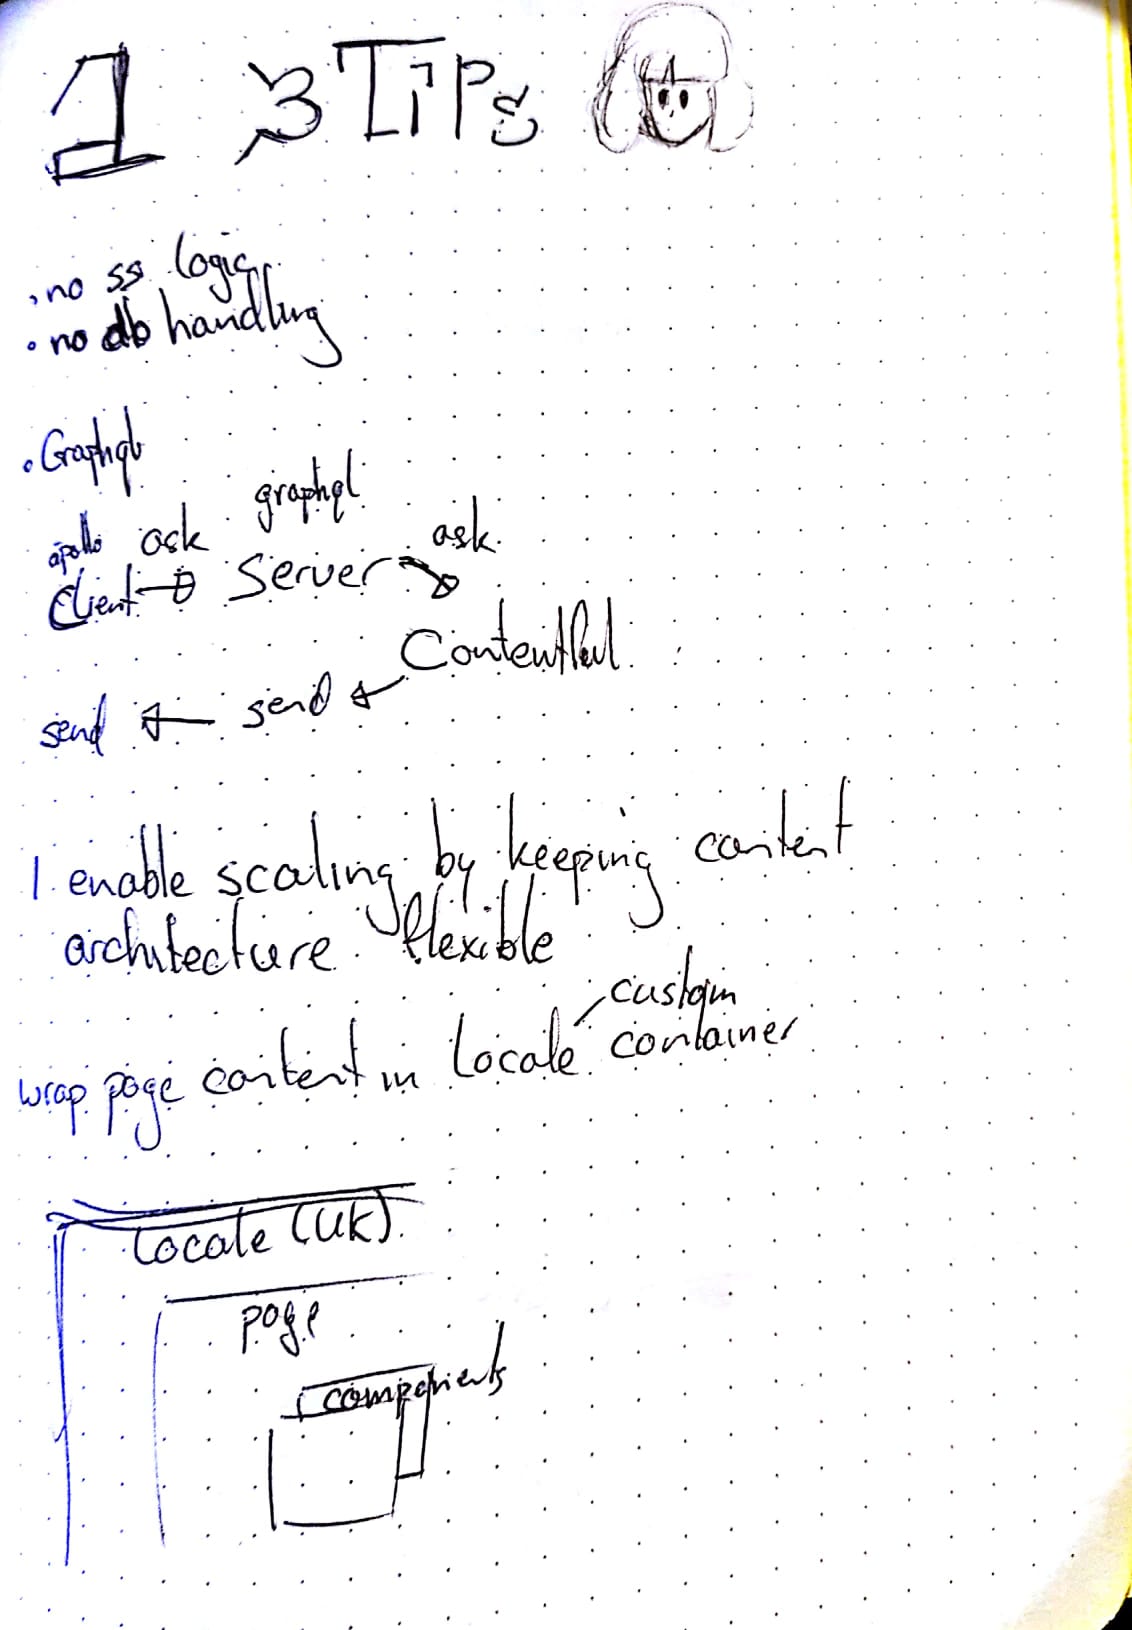 1 3 Tips
. no ss logic
. no db handling
. Graphql
apollo ask graphql ask
Client → Server →
Contentful
send ← send ←
1. enable scaling by keeping content
architecture flexible
custom
wrap page content in Locale container
Locale (UK)
page
components